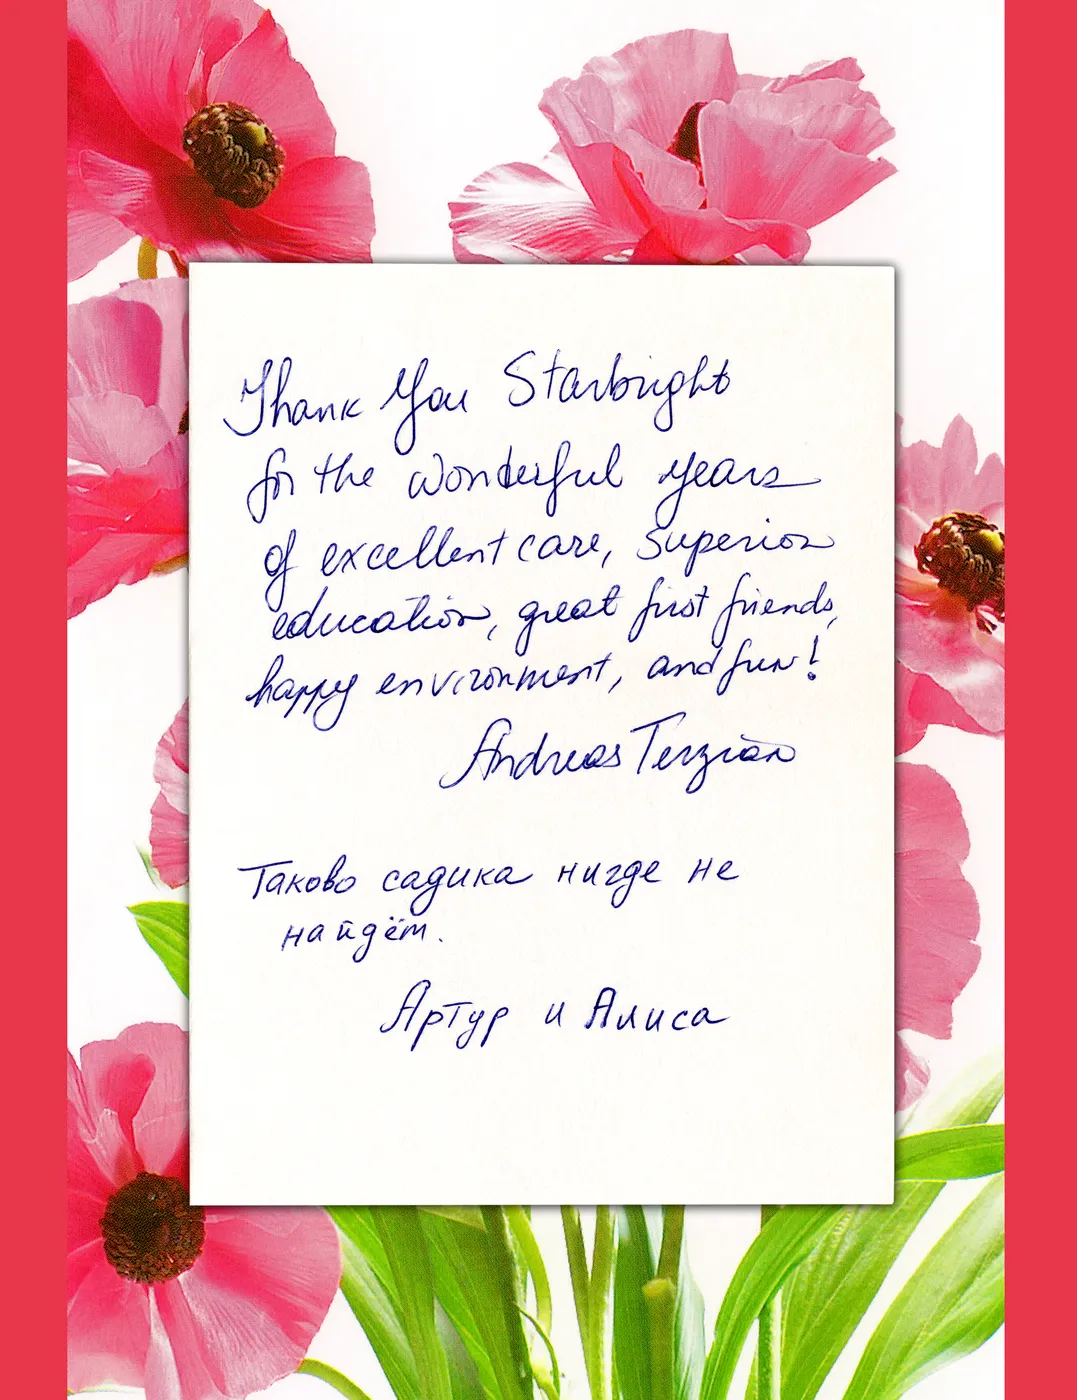 Thank You Starbright
for the wonderful years
of excellent care, superior
education, great first friends,
happy environment, and fun!
Andreas Terzian
Таково садика нигде не
найдёт.
Артур и Алиса